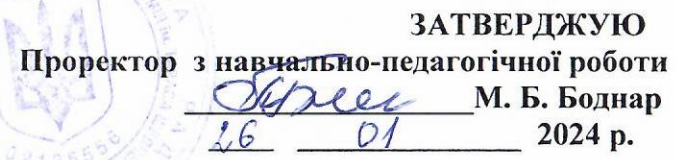 ЗАТВЕРДЖУЮ
Проректор з навчально-педагогічної роботи
М. Б. Боднар
26 01 2024 р.